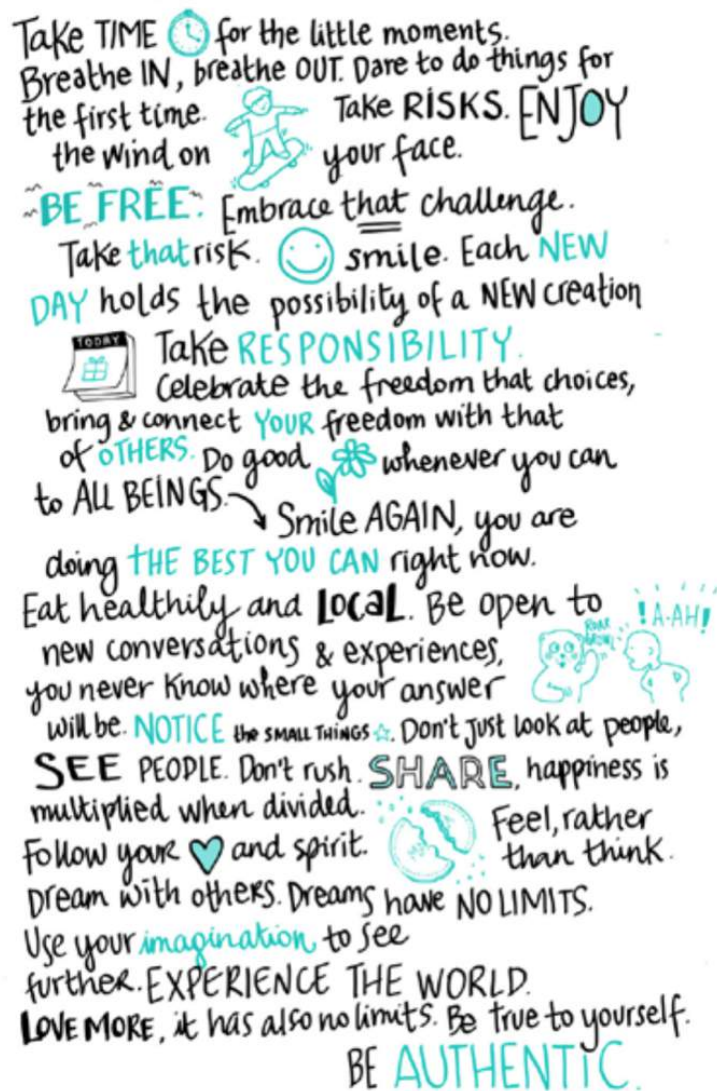 Take TIME for the little moments.
Breathe IN, breathe OUT. Dare to do things for
the first time. Take RISKS. ENJOY
the wind on your face.
BE FREE. Embrace that challenge.
Take that risk. smile. Each NEW
DAY holds the possibility of a NEW creation
TODAY
Take RESPONSIBILITY.
Celebrate the freedom that choices,
bring & connect YOUR freedom with that
of OTHERS. Do good whenever you can
to ALL BEINGS.
Smile AGAIN, you are
doing THE BEST YOU CAN right now.
Eat healthily and LOCAL. Be open to
! A-AH!
new conversations & experiences,
you never know where your answer
will be. NOTICE the SMALL THINGS. Don't just look at people,
SEE PEOPLE. Don't rush. SHARE, happiness is
multiplied when divided.
Feel, rather
than think.
Follow your and spirit.
Dream with others. Dreams have NO LIMITS.
Use your imagination to see
further. EXPERIENCE THE WORLD.
LOVE MORE, it has also no limits. Be true to yourself.
BE AUTHENTIC.